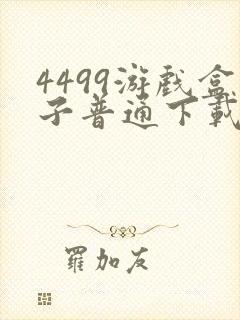 4499游戏盒
子普通下载
羅加友